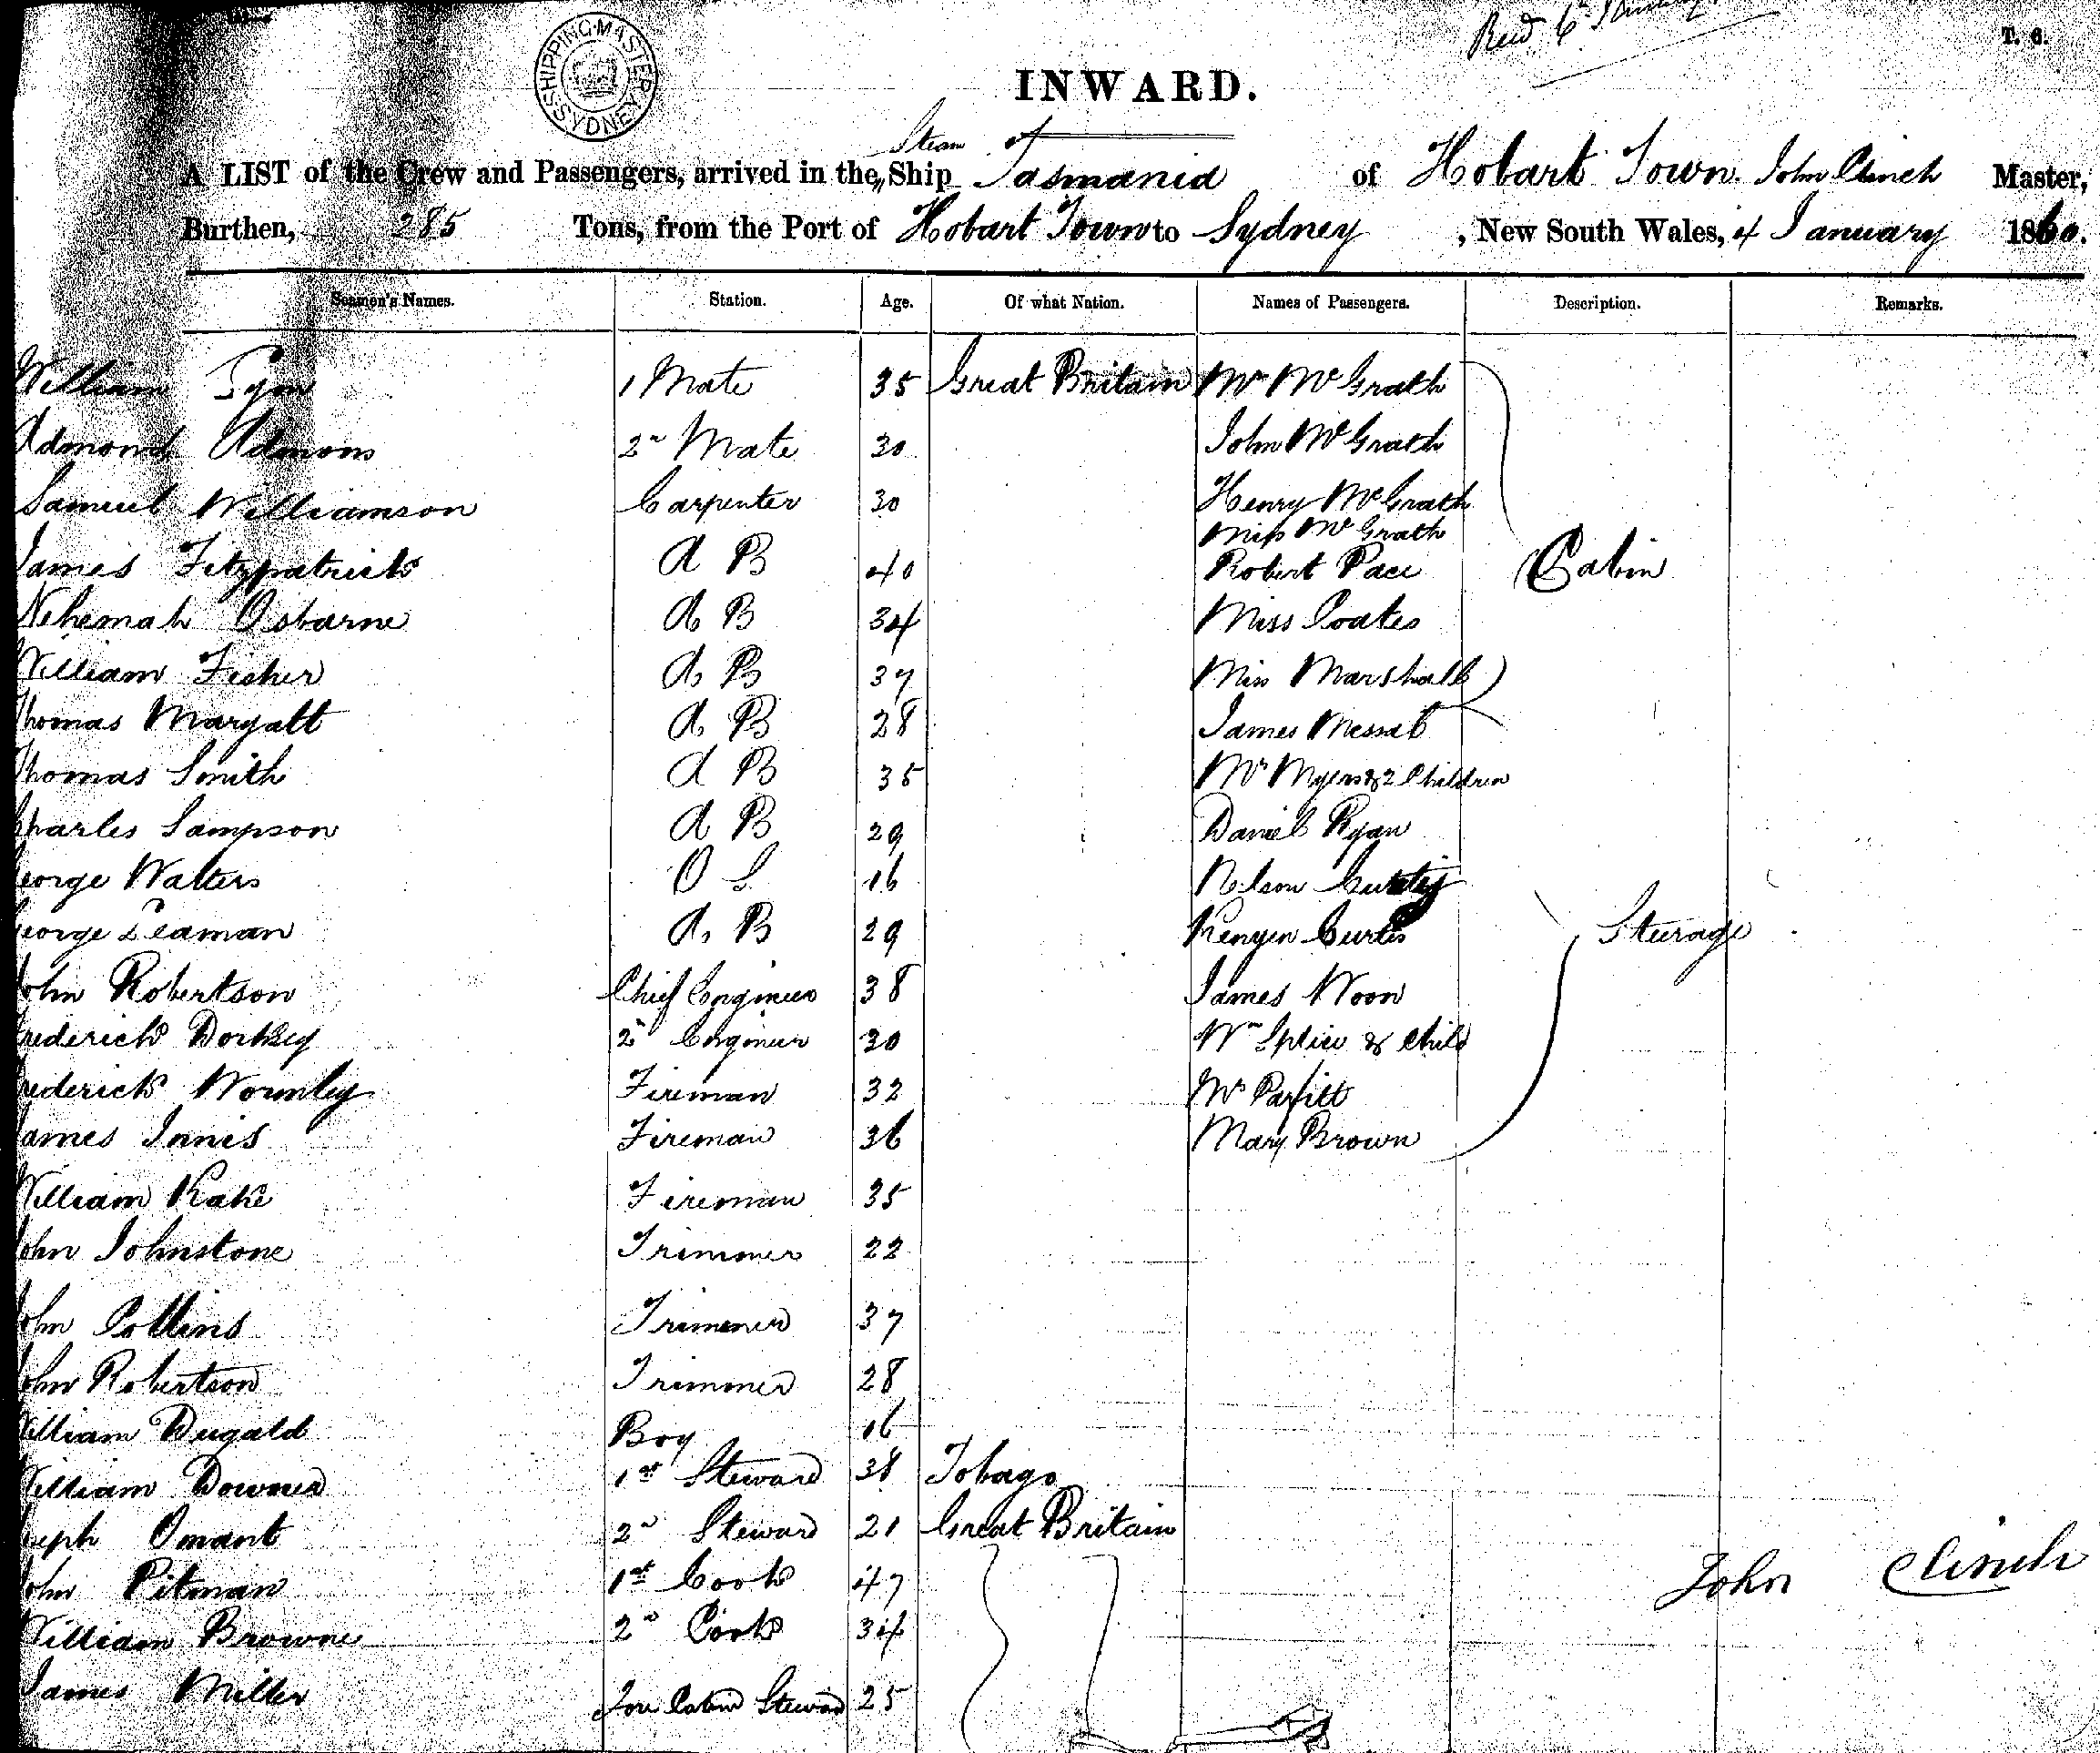 Recd 6th January
T. 6.
SHIPPING MASTER SYDNEY
INWARD.
Steam
A LIST of the Crew and Passengers, arrived in the Ship Tasmania of Hobart Town John Clinch Master,
Burthen, 285 Tons, from the Port of Hobart Town to Sydney, New South Wales, 4 January 1860.
Seamen's Names. Station. Age. Of what Nation. Names of Passengers. Description. Remarks.
William 1 Mate 35 Great Britain Mr McGrath
Admond Admons 2n Mate 30 John McGrath
Samuel Williamson Carpenter 30 Henry McGrath
Miss McGrath
James Fitzpatrick A B 40 Robert Pace Cabin
Nehemah Osbarne A B 34 Miss Coates
William Fisher A B 37 Miss Marshall
Thomas Maryatt A B 28 James
Thomas Smith A B 35 Mrs Myers & 2 Children
Charles Sampson A B 29 Daniel Ryan
George Walters O S 16 Nelson
George Leaman A B 29 Kenyen Curtis Sturage
John Robertson Chief Engineer 38 James Woon
Frederick 2n Engineer 30 Wm Splice & Child
Frederick Wormley Fireman 32 Mrs Parfitt
James Innis Fireman 36 Mary Brown
William Kake Fireman 35
John Johnstone Trimmer 22
John Collins Trimmer 37
John Robertson Trimmer 28
William Dugald Boy 16
William Downer 1st Steward 38 Tobago
Joseph Omant 2n Steward 21 Great Britain
John Pitman 1st Cook 47 John Clinch
William Browne 2n Cook 34
James Miller Fore Cabin Steward 25